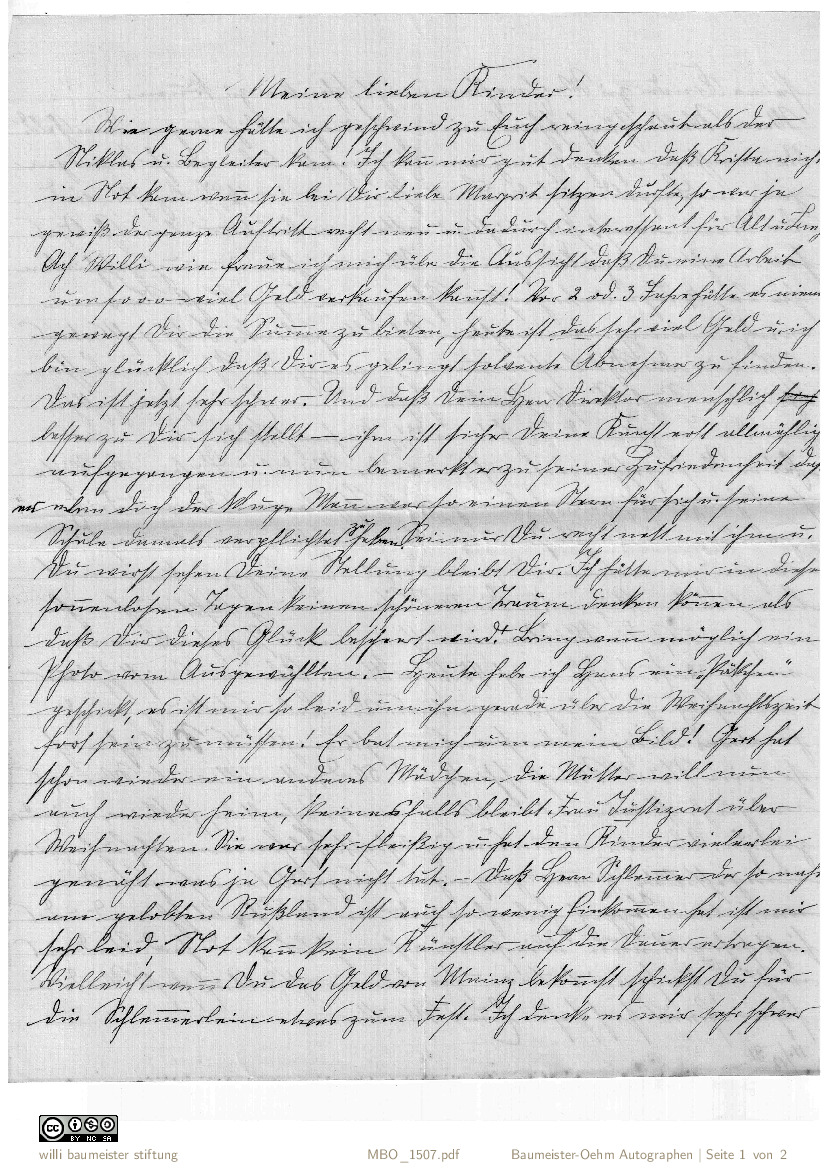 Meine lieben Kinder!
Wie gerne hätte ich geschwind zu Euch reingeschaut als der
Niklas u. Begleiter kam! Ich kan̄ mir gut denken daß Krista nicht
in Not kam wen̄ sie bei Dir liebe Margrit sitzen durfte, so war ja
gewiß der ganze Auftritt recht neu u. dadurch interessant für Alt u.
Ach Willi wie freue ich mich über die Aussicht daß Du eine Arbeit
um so viel Geld verkaufen kan̄st! Vor 2 od. 3 Jahre hätte es
gewagt Dir die Summe zu bieten, heute ist das sehr viel Geld u. ich
bin glücklich daß Dir es gelingt solvente Abnehmer zu finden.
Das ist jetzt sehr schwer. Und daß Dein Herr Direktor menschlich
besser zu Dir sich stellt — ihm ist sicher Deine Kunst erst allmählig
aufgegangen u. nun bemerkt er zu seiner Zufriedenheit daß
er doch der kluge Man̄ war so einen Stern für sich u. seine
Schule damals verpflichtet zu haben. Sei nur Du recht nett mit ihm u.
Du wirst sehen Deine Stellung bleibt Dir. Ich hätte mir in diesen
sonnenlosen Tagen keinen schöneren Traum denken können als
daß Dir dieses Glück beschert wird! Bring wen̄ möglich ein
Photo vom Ausgewählten. – Heute habe ich Hans ein „Päckchen“
geschickt, es ist mir so leid um ihn gerade über die Weihnachtszeit
fort sein zu müssen! Er bat mich um mein Bild! Gert hat
schon wieder ein anderes Mädchen, die Mutter will nun
auch wieder heim, keinesfalls bleibt Frau Justizrat über
Weihnachten. Sie war sehr fleißig u. hat den Kinder vielerlei
genäht was ja Gert nicht tut. – Daß Herr Schlemmer der so nahe
am gelobten Rußland ist auch so wenig Einkom̄en hat ist mir
sehr leid, Not kan̄ kein Künstler auf die Dauer ertragen.
Vielleicht wen̄ Du das Geld von Mainz bekom̄st schickst Du für
die Schlem̄erlein etwas zum Fest. Ich denke es mir sehr schwer
CC BY NC SA
willi baumeister stiftung MBO_1507.pdf Baumeister-Oehm Autographen | Seite 1 von 2